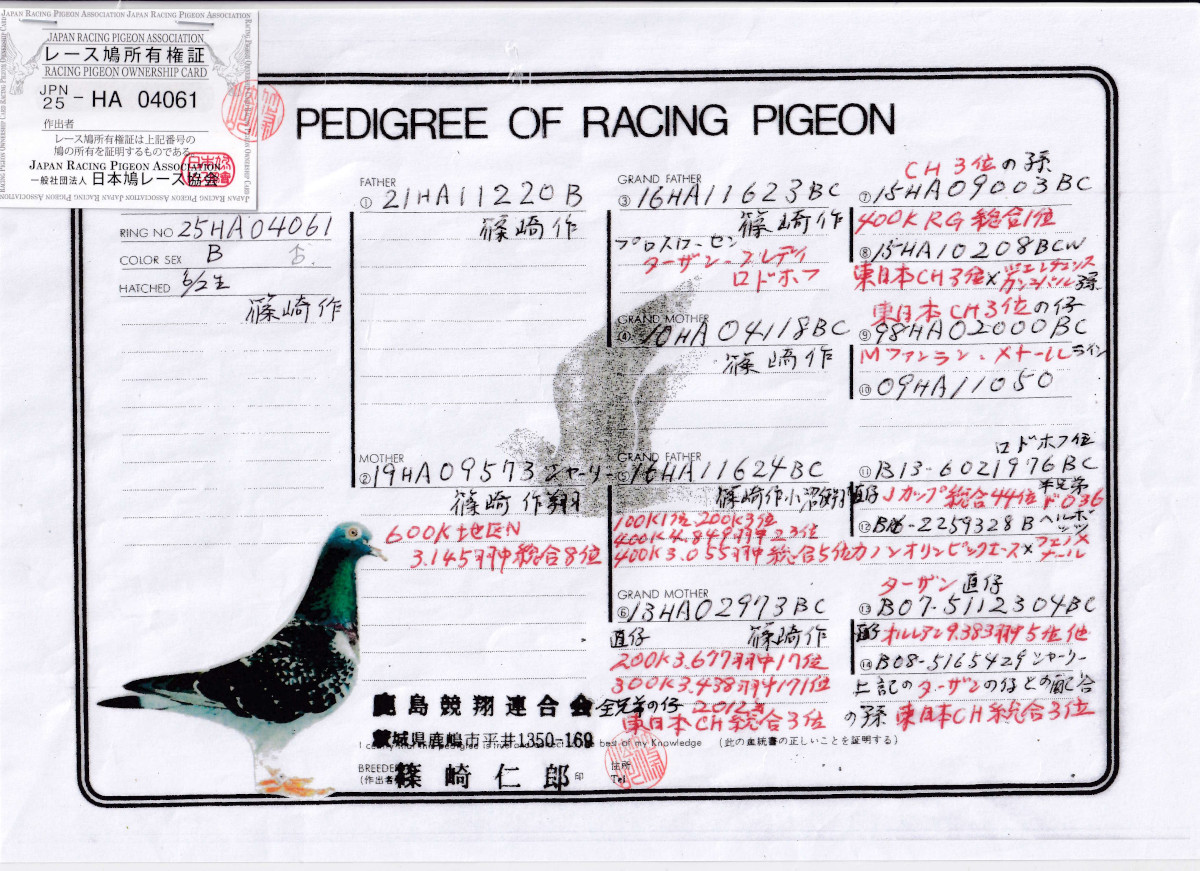 JAPAN RACING PIGEON ASSOCIATION JAPAN RACING PIGEON ASSOCIATION
JAPAN RACING PIGEON ASSOCIATION
レース鳩所有権証
RACING PIGEON OWNERSHIP CARD
JPN
25 - HA 04061
作出者
レース鳩所有権証は上記番号の
鳩の所有を証明するものである。
JAPAN RACING PIGEON ASSOCIATION
一般社団法人 日本鳩レース協会
PEDIGREE OF RACING PIGEON
RING NO 25HA04061
COLOR SEX B ♂
HATCHED 6/2生
篠崎作
FATHER
① 21HA11220B
篠崎作
MOTHER
② 19HA09573 シャーリー
篠崎作翔
600K地区N
3.145羽中総合8位
GRAND FATHER
③ 16HA11623BC
篠崎作
ターザン-フレディ
ロドホフ
GRAND MOTHER
④ 10HA04118BC
篠崎作
GRAND FATHER
⑤ 16HA11624BC
篠崎作小沼
100K1位.200K3位
400K4.849羽中23位
400K3.055羽中総合5位
GRAND MOTHER
⑥ 13HA02973BC
直仔 篠崎作
200K3.677羽中17位
300K3.438羽中171位
全兄弟の仔 2012年
東日本CH総合3位
CH3位の孫
⑦ 15HA09003BC
400KRG総合1位
⑧ 15HA10208BCW
東日本CH3位×
東日本CH3位の仔
⑨ 98HA02000BC
Mファンラン.メナールライン
⑩ 09HA11050
ロドホフ位
⑪ B13-6021976BC
直仔 Jカップ総合44位
⑫ B06-2259328B
カノンオリンピックエース×フェノメナール
ターザン直仔
⑬ B07-5112304BC
直仔 オルレアン9.383羽5位他
⑭ B08-5165429シャーリー
上記のターザンの仔との配合
の孫 東日本CH総合3位
鹿島競翔連合会
茨城県鹿嶋市平井1350-169
best of my Knowledge (此の血統書の正しいことを証明する)
BREEDER
(作出者) 篠崎仁郎 印
住所
Tel